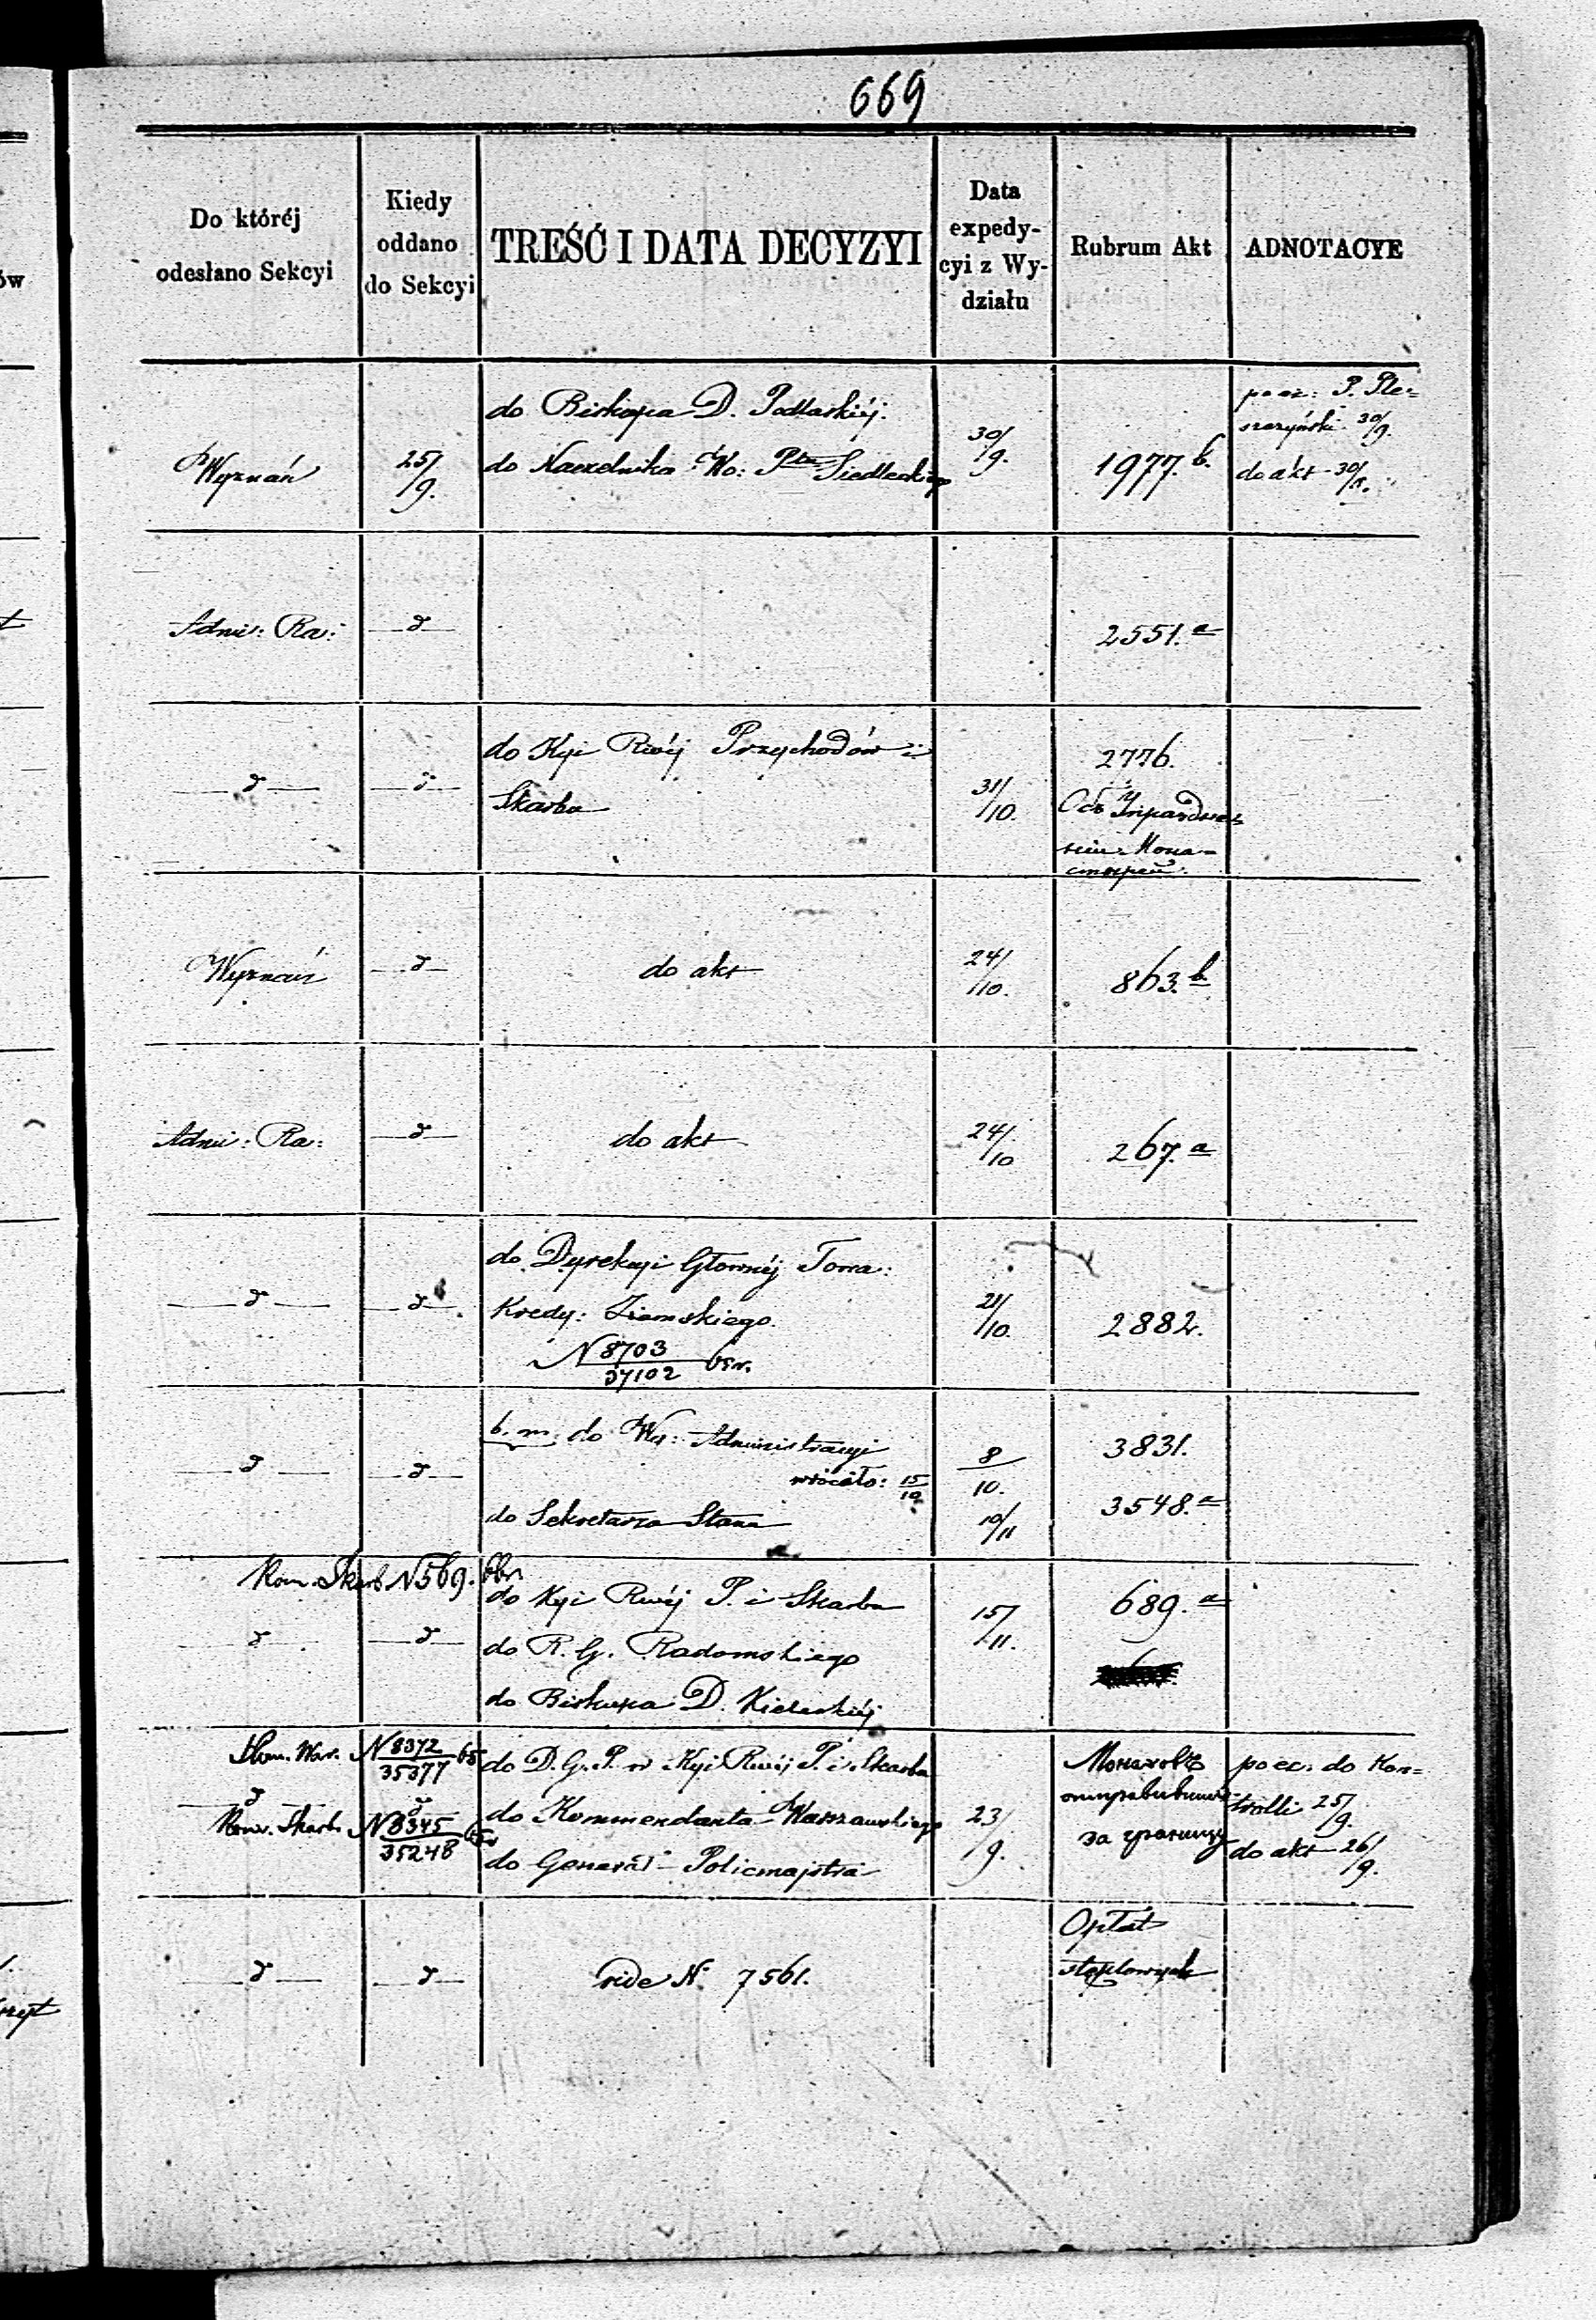 669
Do któréj
odesłano Sekcyi
Kiedy
oddano
do Sekcyi
TREŚĆ I DATA DECYZYI
Data
expedy-
cyi z Wy-
działu
Rubrum Akt
ADNOTACYE
Wyznań
25/9.
do Biskupa D. Podlaskiéj.
do Naczelnika Wo: Ptu Siedleckiego
30/9.
1977. b.
poez: P. Ple=
szczyński 30/9.
do akt
Admi: Ra:
—d—
2551. a
—d—
—d—
do Kyi Rwéj Przychodów i
Skarbu
31/10.
2776.
Объ Упраздне
нии Мона-
стырей.
Wyznań
—d—
do akt
24/10.
863. b.
Admi: Ra:
—d—
do akt
24/10
267. a
—d—
—d—
do Dyrekcyi Głównéj Towa:
Kredy: Ziemskiego.
N 8703/37102
21/10.
2882.
—d—
—d—
b. m. do Wy: Administracyi
wróciło: 15/10
do Sekretarza Stanu
8/10.
10/11
3831.
3548. a
Kom. Skarb N 569.
—d—
—d—
do Kyi Rwéj P. i Skarbu
do R. G. Radomskiego
do Biskupa D. Kieleckiéj
15/11.
689. a
N 8372/35377
—d—
—d—
Kom. Skarb. N 8345/35248
do D. G. P. w Kyi Rwéj P. i Skarbu
do Kommendanta Warszawskiego
do Generał-Policmajstra
23/9.
Монаховъ
за границу
poez. do Kon=
trolli 25/9.
do akt 26/9.
—d—
—d—
vide N. 7561.
Opłat
stęplowych